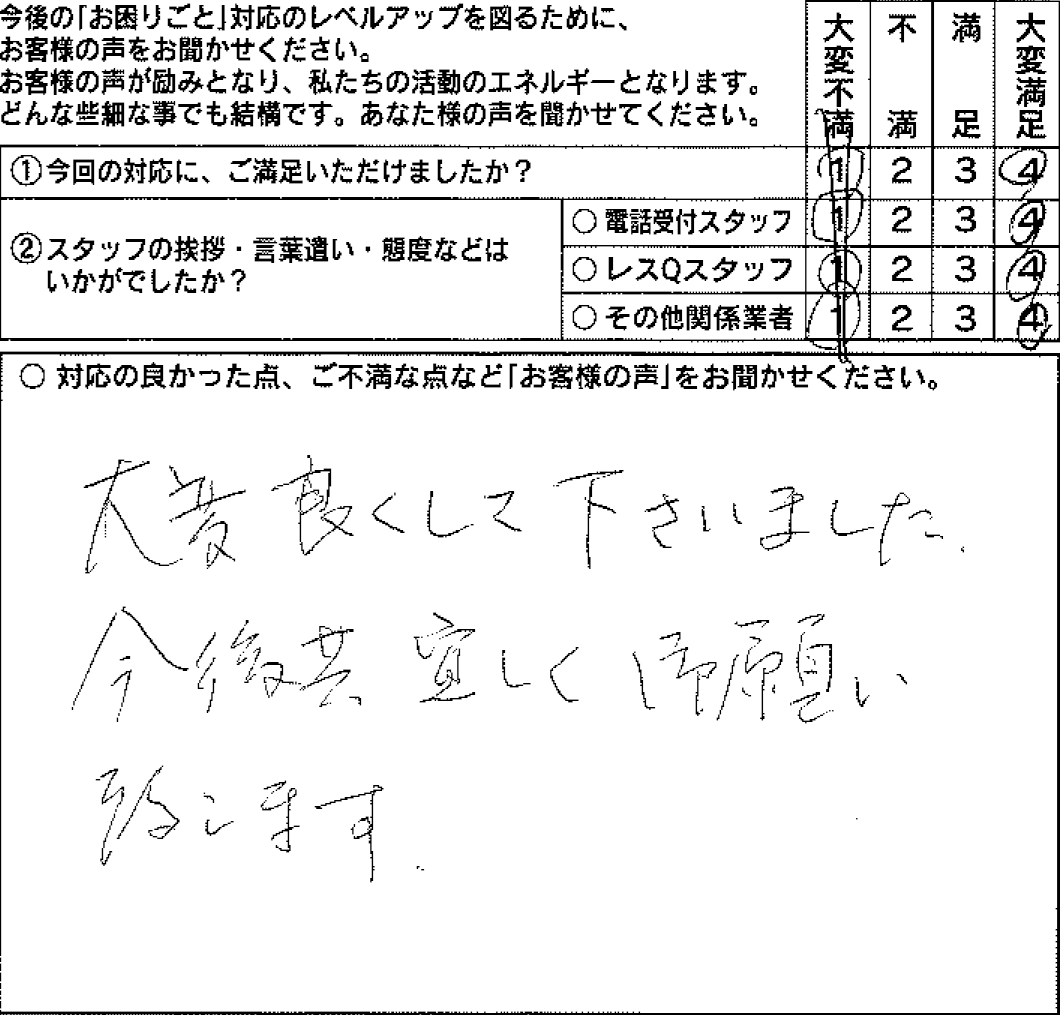 今後の「お困りごと」対応のレベルアップを図るために、
お客様の声をお聞かせください。
お客様の声が励みとなり、私たちの活動のエネルギーとなります。
どんな些細な事でも結構です。あなた様の声を聞かせてください。
大変不満 不満 満足 大変満足
①今回の対応に、ご満足いただけましたか？ 1 2 3 4
②スタッフの挨拶・言葉遣い・態度などは
いかがでしたか？
○ 電話受付スタッフ 1 2 3 4
○ レスQスタッフ 1 2 3 4
○ その他関係業者 1 2 3 4
○ 対応の良かった点、ご不満な点など「お客様の声」をお聞かせください。
大変良くして下さいました.
今後共宜しく御願い
致します.